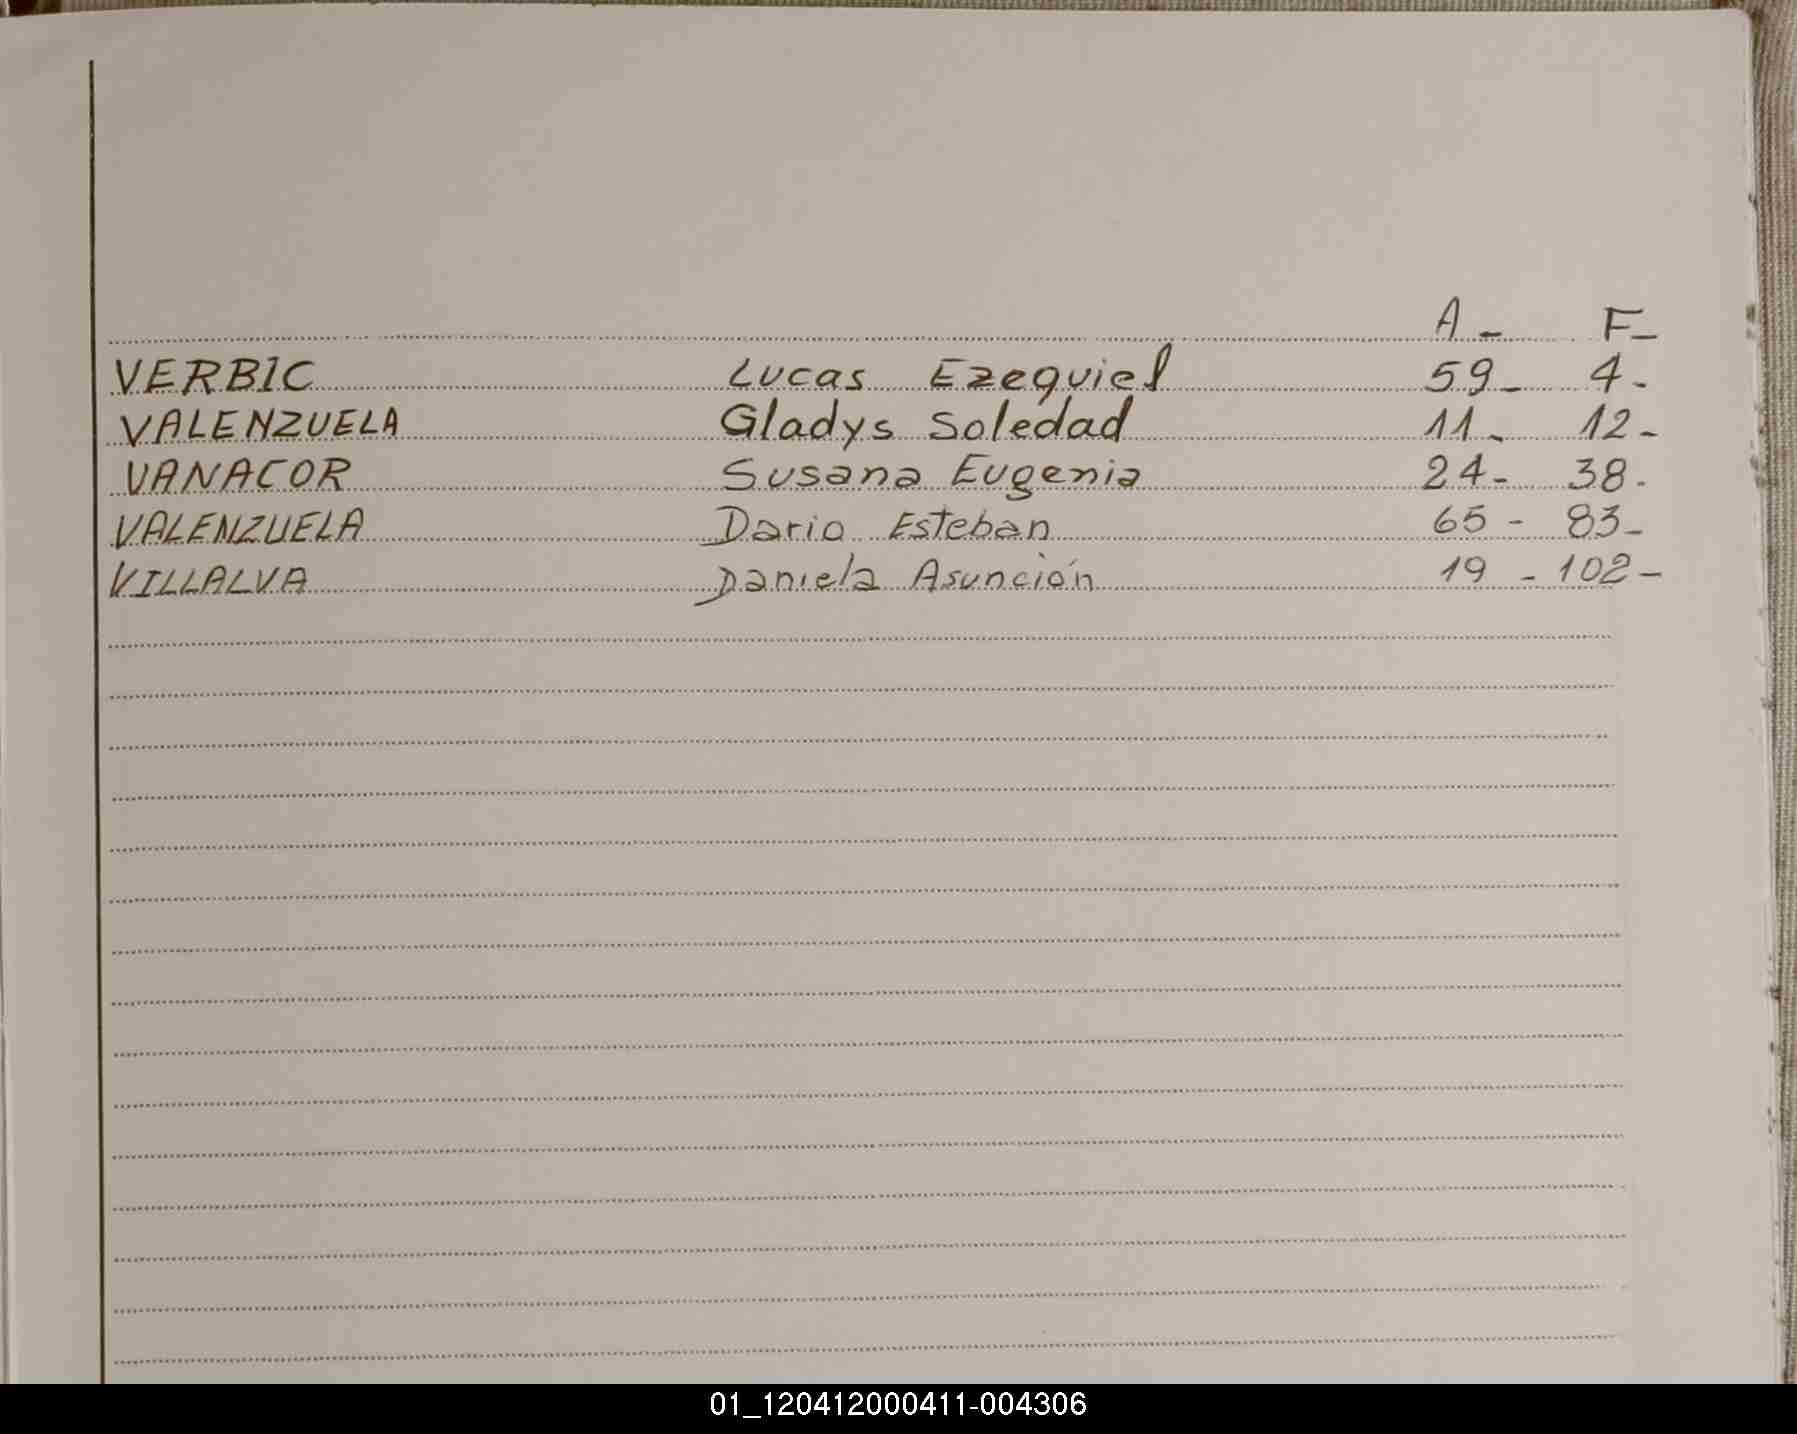 A - F-
VERBIC Lucas Ezequiel 59- 4-
VALENZUELA Gladys Soledad 11- 12-
VANACOR Susana Eugenia 24- 38-
VALENZUELA Dario Esteban 65- 83-
VILLALVA Daniela Asunción 19 - 102-
01_120412000411-004306